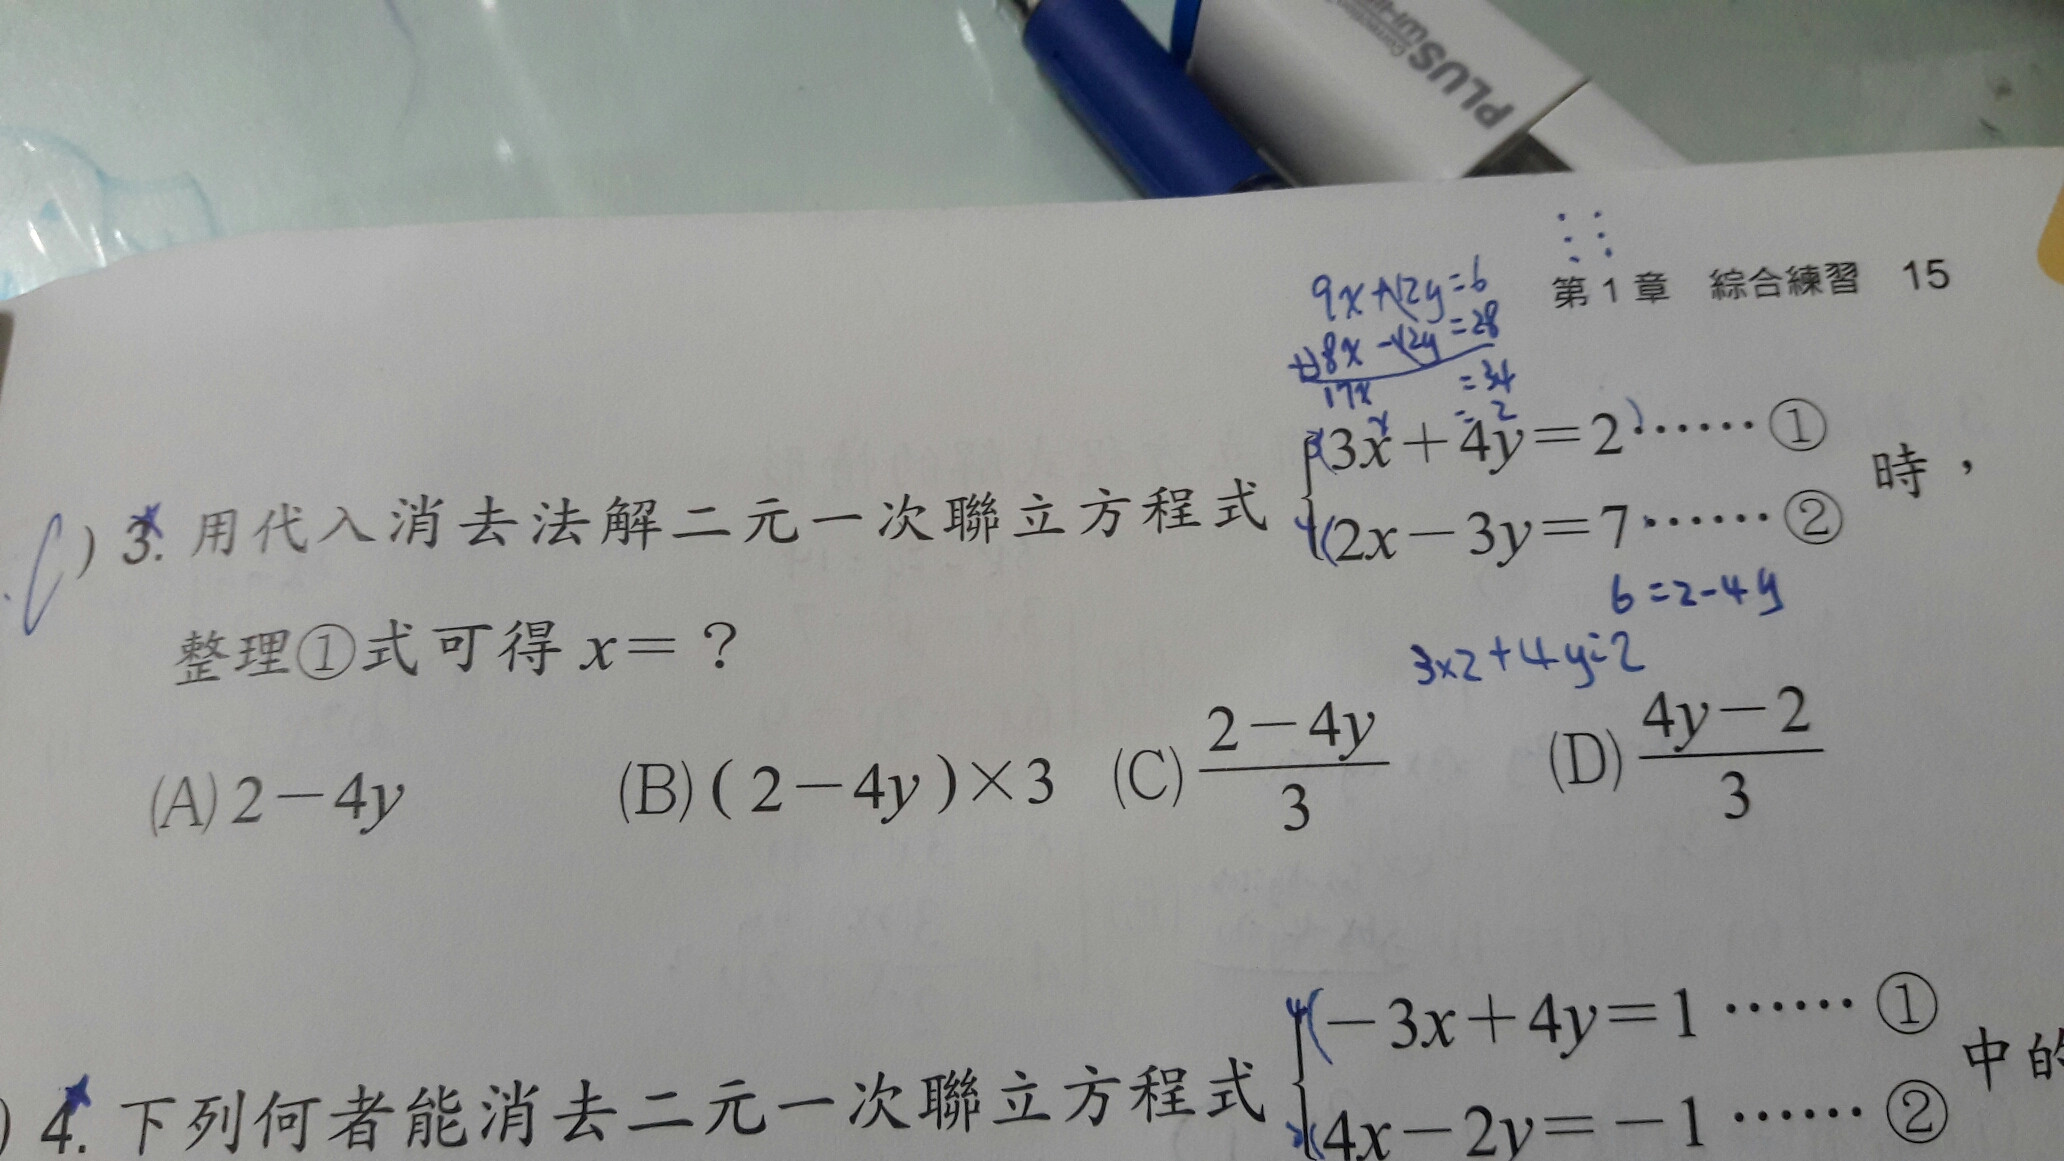 PLUS
第1章 綜合練習 15
9x+12y=6
+)8x-12y=28
17x =34
x =2
3(3x+4y=2)……①
)3. 用代入消去法解二元一次聯立方程式 時，
4(2x-3y=7……②
6=2-4y
整理①式可得x=？
3x2+4y=2
(A)2-4y (B)(2-4y)×3 (C)\frac{2-4y}{3} (D)\frac{4y-2}{3}
4(-3x+4y=1……①
)4. 下列何者能消去二元一次聯立方程式 中的
4x-2y=-1……②